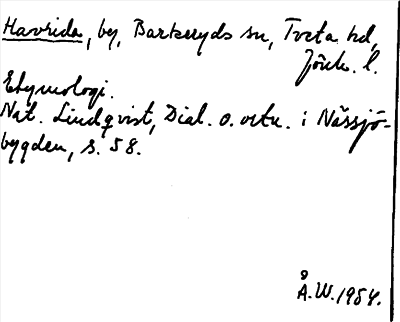 Havrida, by, Barkeryds sn, Tveta hd,
Jönk. l.
Etymologi.
Nat. Lindqvist, Dial. o. ortn. i Nässjö-
bygden, s. 58.
Å.W. 1954.